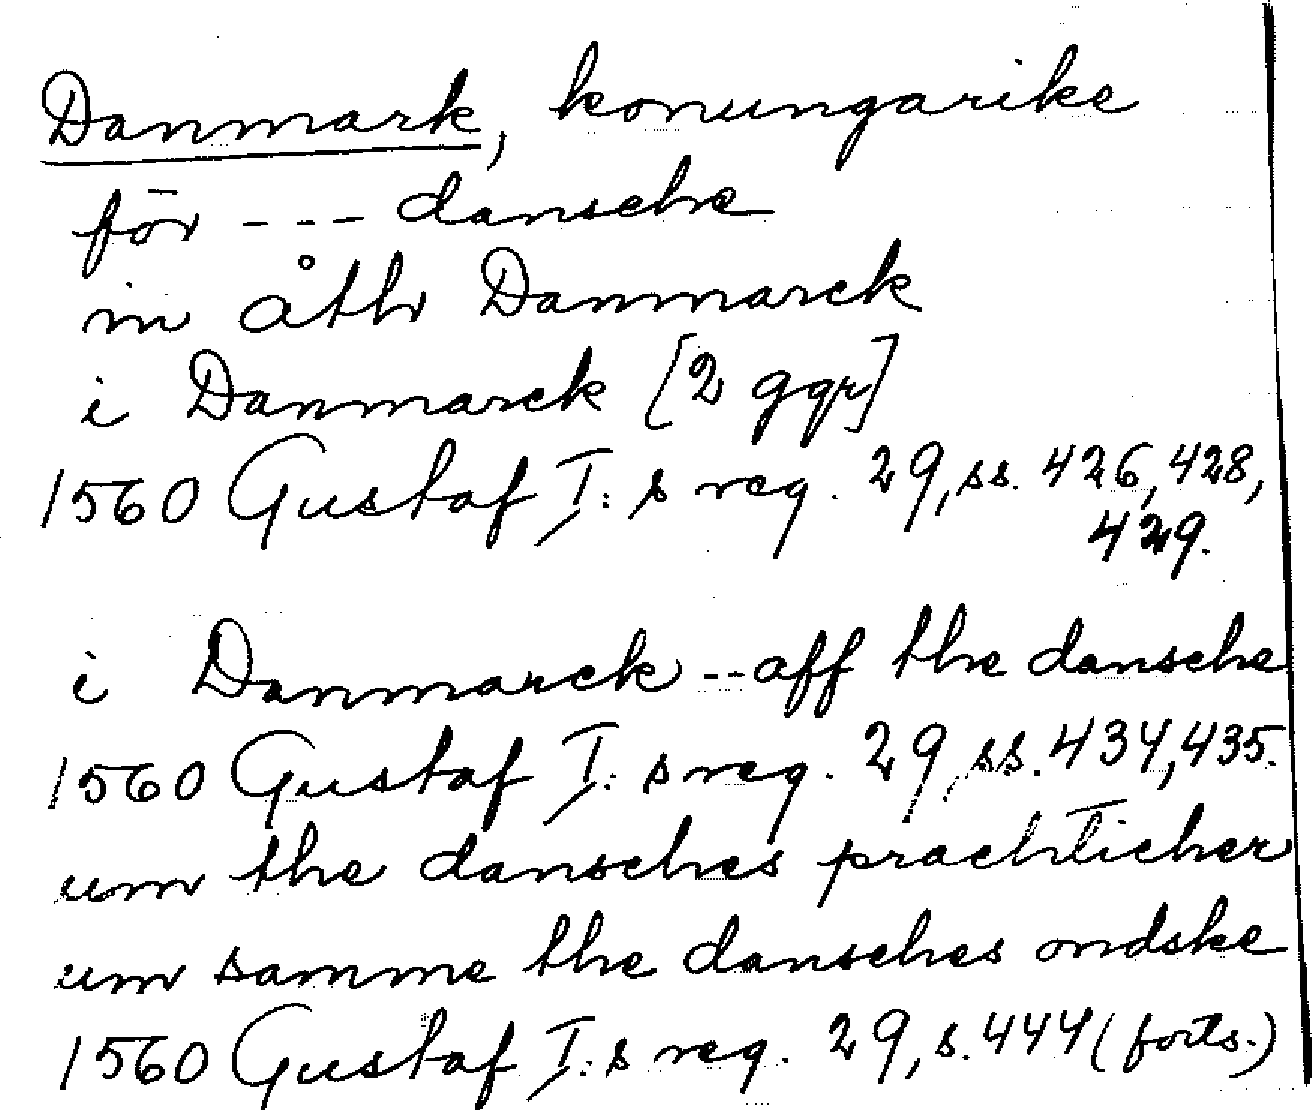 Danmark, konungarike
för --- dansche
in åth Danmarck
i Danmarck [2 ggr]
1560 Gustaf I:s reg. 29, ss. 426, 428,
429.
i Danmarck -- aff the dansche
1560 Gustaf I:s reg. 29, ss. 434, 435.
um the dansches prachticher
um samme the dansches ondske
1560 Gustaf I:s reg. 29, s. 444 (forts.)